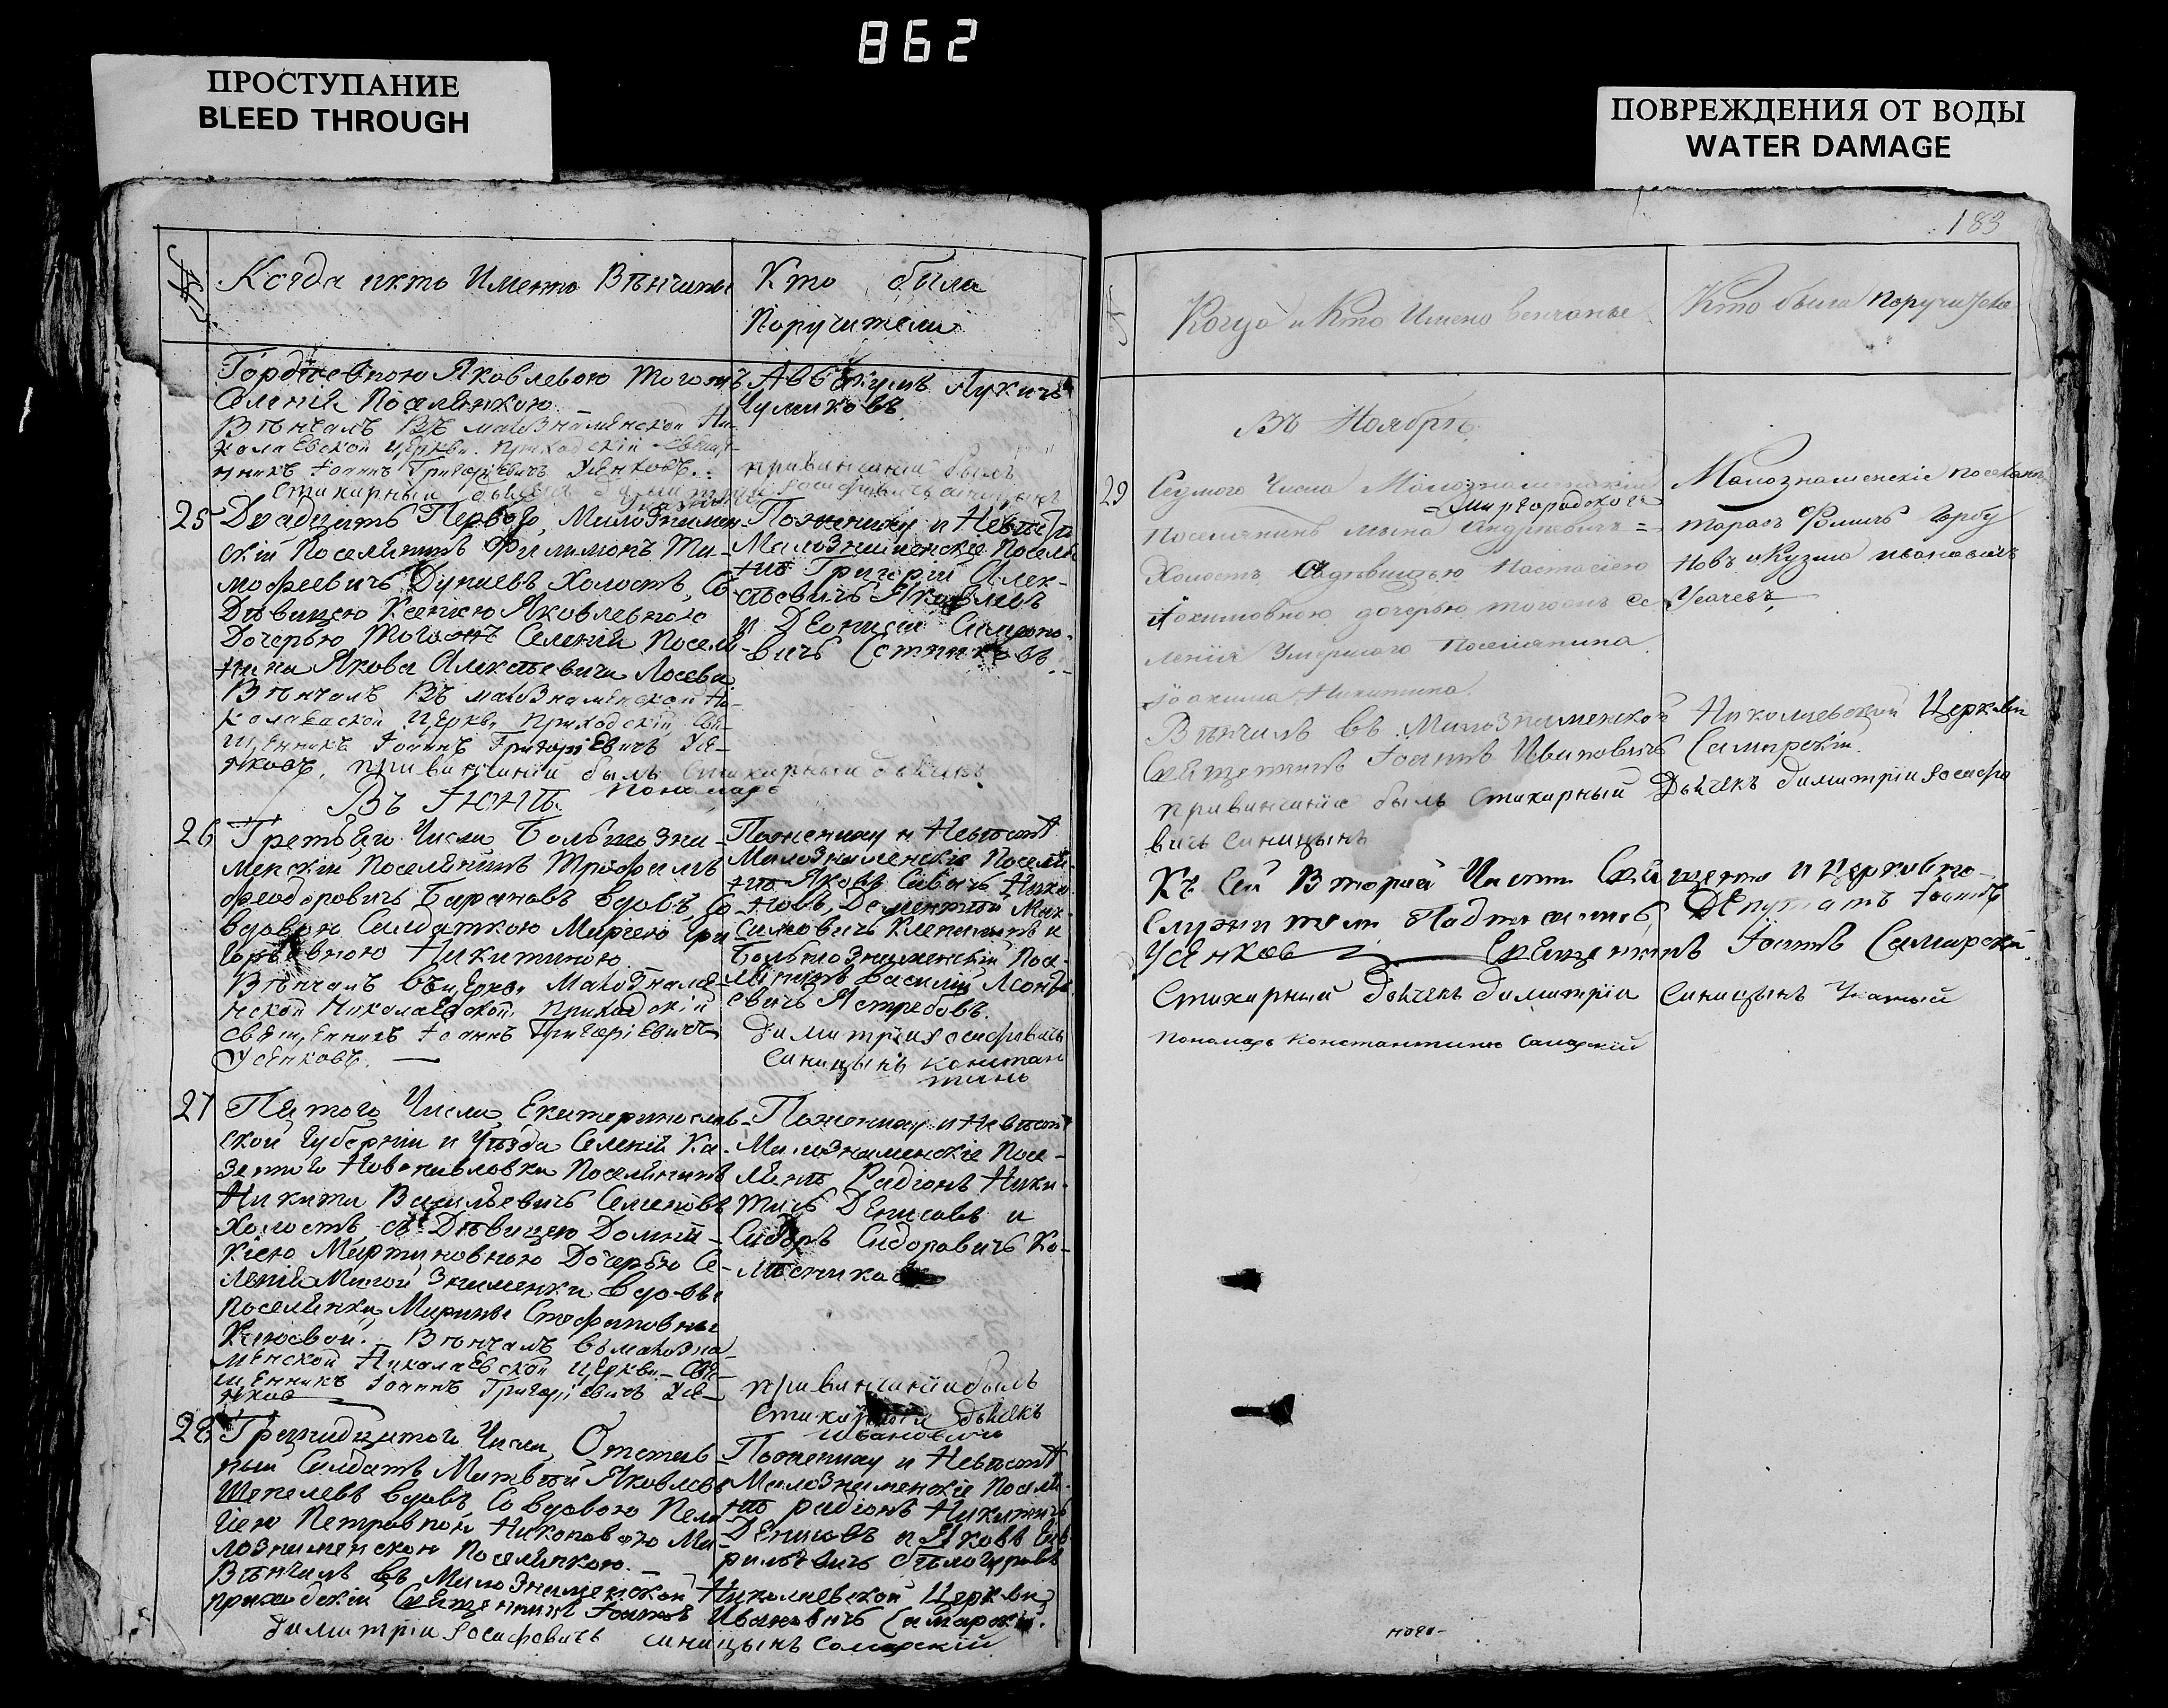 862
ПРОСТУПАНИЕ
BLEED THROUGH
ПОВРЕЖДЕНИЯ ОТ ВОДЫ
WATER DAMAGE
183
№
Когда икто Именно Вѣнчаны
Кто была
Поручители
Гордѣевною Яковлевою тогожъ
Селенія Поселянкою.
Вѣнчалъ Въ малоЗнамѣнской Ни-
колаевской церкви. Приходскій свящ-
нникъ Іоаннъ Григоріевичъ Усенковъ.
Стихарный
Аввакумъ Лукичъ
Чумиковъ
привинчаніи былъ
25
Двадцать Перваго, Малознамен-
скій Поселянинъ Филимонъ Ти-
мофеевичъ Дунаевъ Холостъ, Со
Дѣвицею Ксенiею Яковлевною
Дочерью тогожъ Селенія Поселя-
нина Якова Алексѣевича Лосева
Вѣнчалъ Въ малоЗнаменской Ни-
колаевской церкви Приходскій, Свя-
щенникъ Іоаннъ Григоріевичъ Усе-
нковъ, привинчаніи былъ Стихарный дьячекъ
Пономарь
Поженику и Невѣстѣ
Малознаменскіе Поселя-
не Григорій Алек-
сѣевичъ Яковлевъ
и Деонисій
Въ ІЮНѢ.
26
Третьяго Числа Большезна-
менскій Поселянинъ Трофимъ
Феодоровичъ Барановъ Вдовъ, Со
вдовою Салдаткою Марѳею Гри-
горьевною Никитиною
Вѣнчалъ въ церкви Малознаме-
нской Николаевской. Приходскій
священникъ Іоаннъ Григоріевичъ
Усенковъ.
Поженику и Невѣстѣ
Малознаменскіе Поселя-
не Яковъ Савичъ Нико-
новъ, Дементий Мак-
симовичъ Клепининъ и
Большознаменскій Посе-
лянинъ Василий Леонтi-
евичъ Ястребовъ.
димитріи Іосифовичъ
Синицынъ констан
тинъ
27
Пятаго Числа, Екатеринослав-
ской Губерніи и Уѣзда Селенія Ка-
зеннаго Новопавловки Поселянинъ
Никита Васильевичъ Семеновъ
Холостъ, съ Дѣвицею Домни-
кіею Мартиновною Дочерью Се-
ленія Малой Знаменки Вдовы
Поселянки, Марины Стефановны
Вѣнчалъ въ малозна-
мѣнской Николаевской церкви Свя-
щенникъ Іоаннъ Григоріевичъ Усе-
нков
Поженику и Невѣстѣ
Малознаменскіе Посе-
ляне Радіонъ Ники-
тичъ Денисовъ и
Сидоръ Сидоровичъ Ко-
привинчаніи былъ
Стихарный дьячекъ
Ивановичъ
28
Тритцатаго Числа, Отстав-
ный Салдатъ Матвѣй Яковлевъ
Шепелевъ Вдовъ, Со вдовою Пела-
гіею Петровною Никоновою Ма-
лознаменскою Поселянкою.
Вѣнчалъ въ Малознаменской Николаевской Церкви
приходскій Священникъ Іоаннъ Ивановичъ Самарскій.
димитріи Іосифовичъ синицынъ Самарскій
Поженику и Невѣстѣ
Малознаменскіе Поселя-
не радіонъ Никитичъ
Денисовъ и Яковъ
Когда и Кто Имено венчаные
Кто была поручители
Въ Ноябрѣ
29
Седмого Числа Малознаменскій
=Миргородского
поселянинъ Андреевичъ =
Холостъ, Съдѣвицею Настасіею
Іокимовною дочерью тогожъ се
ленія Умершого Поселянина
Іоакима Никитина
Малознаменскіе поселяне
тарасъ Фомичъ Горбу
новъ иКузма ивановичъ
Усачевъ
Вѣнчалъ въ Малознаменской Николаевской Церкви
Священникъ Іоаннъ Ивановичъ Самарскій.
привинчаніе былъ Стихарный Дьячекъ димитріи Іосифо
вичъ Синицынъ
Къ Сей Второй Части Священно и Церковно-
служители Подписались, Депутатъ Іоаннъ
Усенков Священникъ Іоаннъ Самарскій.
Стихарный дьячекъ димитріи Синицынъ
пономарь Константинъ Самарскій